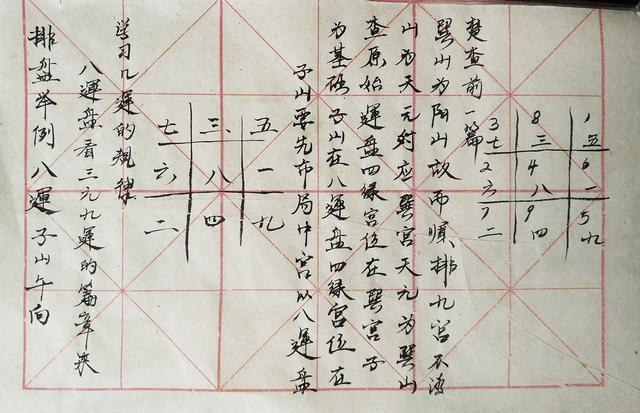 排盘举例八運子山午向
八運盘看三元九運的篇章来
学习九運的規律
七 三 五
六 八 一
二 四 九
子山要先布局中宮以八運盘
为基础子山在八運盘四绿宮位在
查原始運盘四绿宮位在巽宮子
山为天元对应巽宮天元为巽山
巽山为阳山故而顺排九宮不清
楚查前一篇
3 8 1
七 三 五
2 4 6
六 八 一
7 9 5
二 四 九